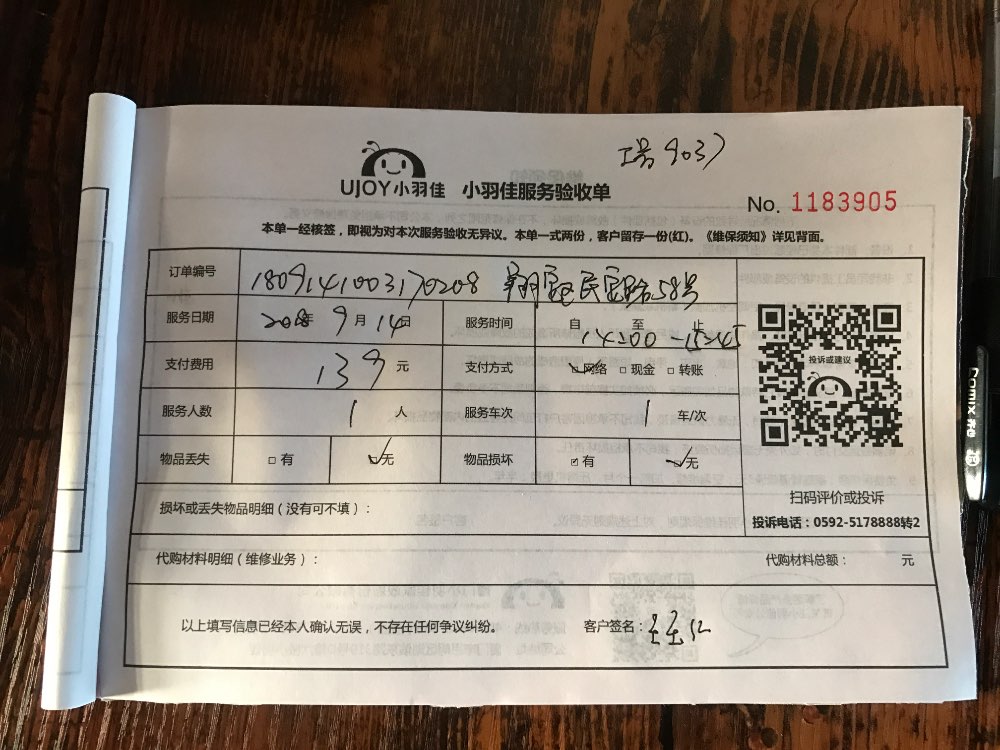 工号 9037
UJOY小羽佳 小羽佳服务验收单
No. 1183905
本单一经核签，即视为对本次服务验收无异议。本单一式两份，客户留存一份(红)。《维保须知》详见背面。
订单编号 1809141003170208 民安路58号
服务日期 2018年 9月 14日 服务时间 自 14:00 至 15:45
支付费用 139 元 支付方式 网络 □ 现金 □ 转账
服务人数 1 人 服务车次 1 车/次
物品丢失 □ 有 ☑无 物品损坏 ☑ 有 ☑无
投诉或建议
扫码评价或投诉
损坏或丢失物品明细（没有可不填）：
投诉电话：0592-5178888转2
代购材料明细（维修业务）： 代购材料总额： 元
以上填写信息已经本人确认无误，不存在任何争议纠纷。 客户签名：